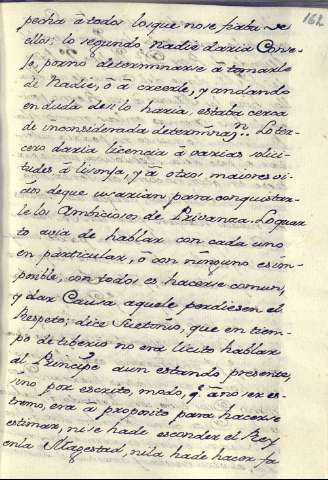 162
pecha à todos los que no se fiaba de
ellos; lo segundo, Nadie daria Conse-
jo, para no determinarse à tomarlo
de Nadie, ô à creerle, y andando
en duda de si lo haria, estaba cerca
de inconsiderada determinaz.n Lo ter-
cero daria licencia à varias solici-
tudes à lisonja, y à otros maiores vi-
cios de que usarian para conquistar-
le los Ambiciosos de Privanza. Lo quar
to avia de hablar con cada uno
en particular, ô con ninguno es im-
posible, con todos es hacerse comun,
y dar Causa aque le perdiesen el
Respeto; dice Suetonio, que en tiem-
po de tiberio no era licito hablar
al Principe aun estando presente,
sino por escrito, modo, q.e à no ser es-
tremo, era à proposito para hacerse
estimar, ni se hade esconder el Rey
en la Magestad, ni la hade hacer fa